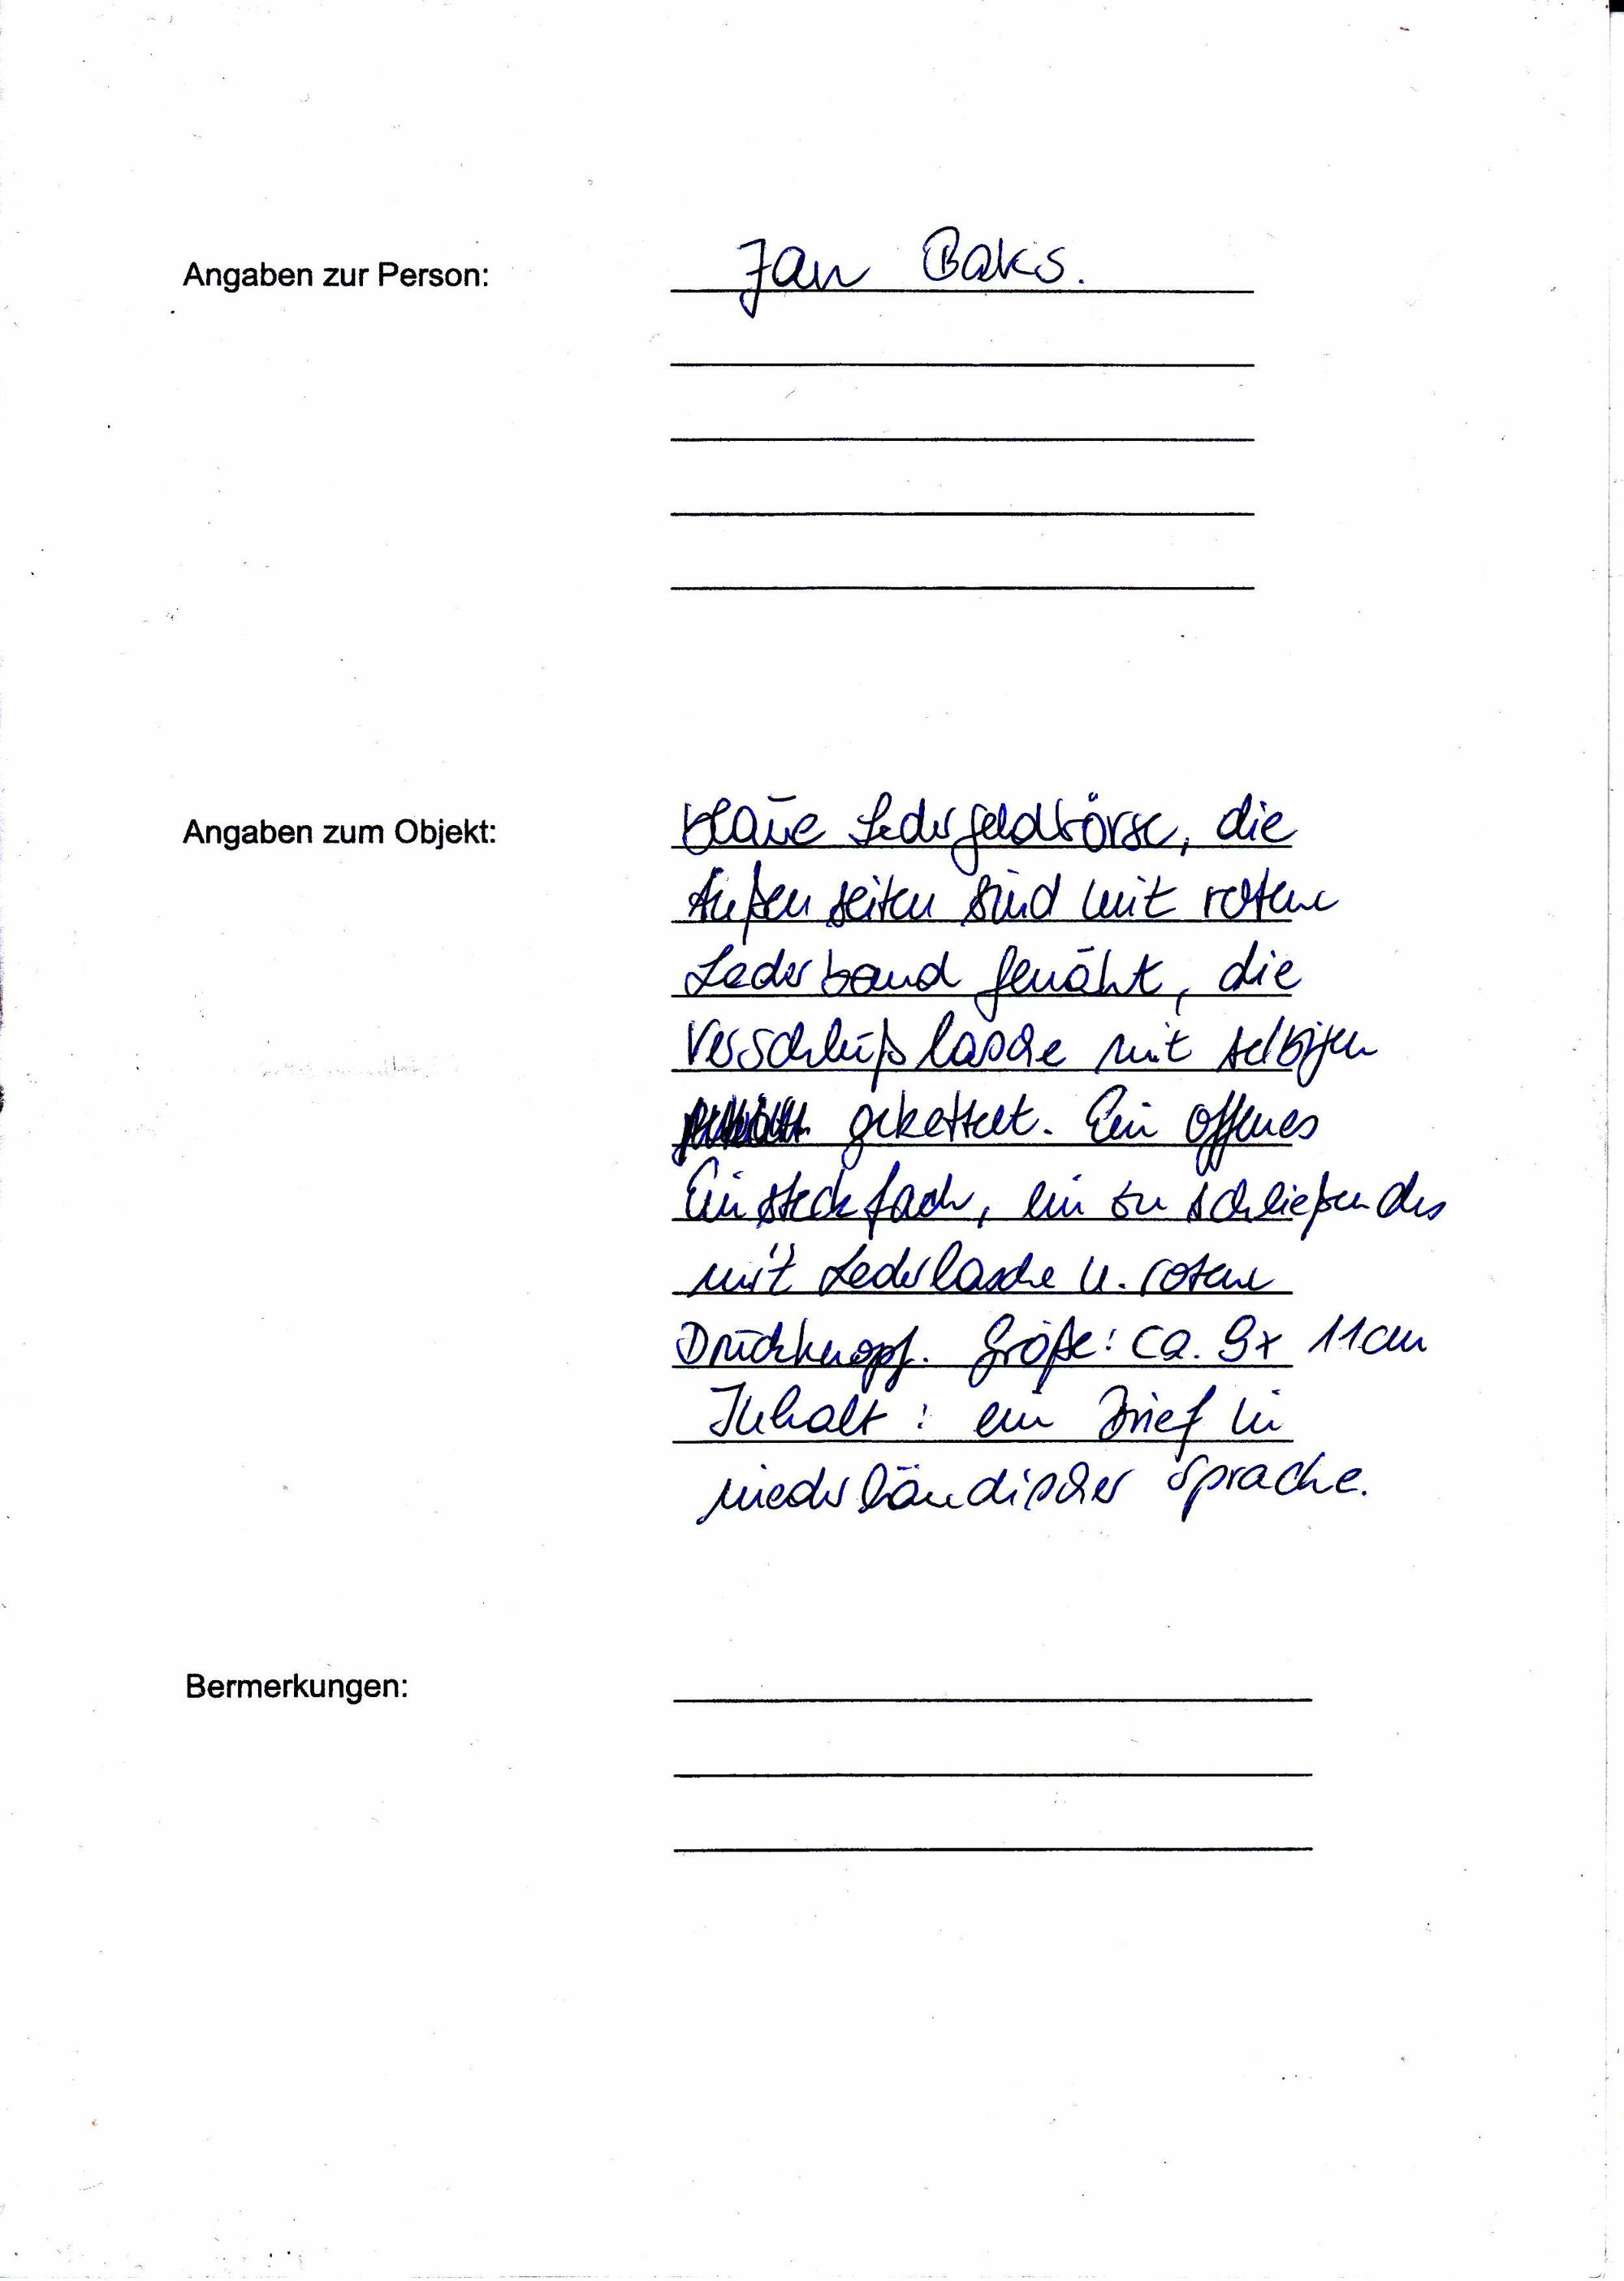 Angaben zur Person: Jan Baks.
Angaben zum Objekt: blaue Ledergeldbörse, die
Außenseiten sind mit rotem
Lederband genäht, die
Verschlußlasche mit selbigen
gekettelt. Ein offenes
Einsteckfach, ein zu schließendes
mit Lederlasche u. rotem
Druckknopf. Größe: ca. 9x 11cm
Inhalt: ein Brief in
niederländischer Sprache.
Bermerkungen: